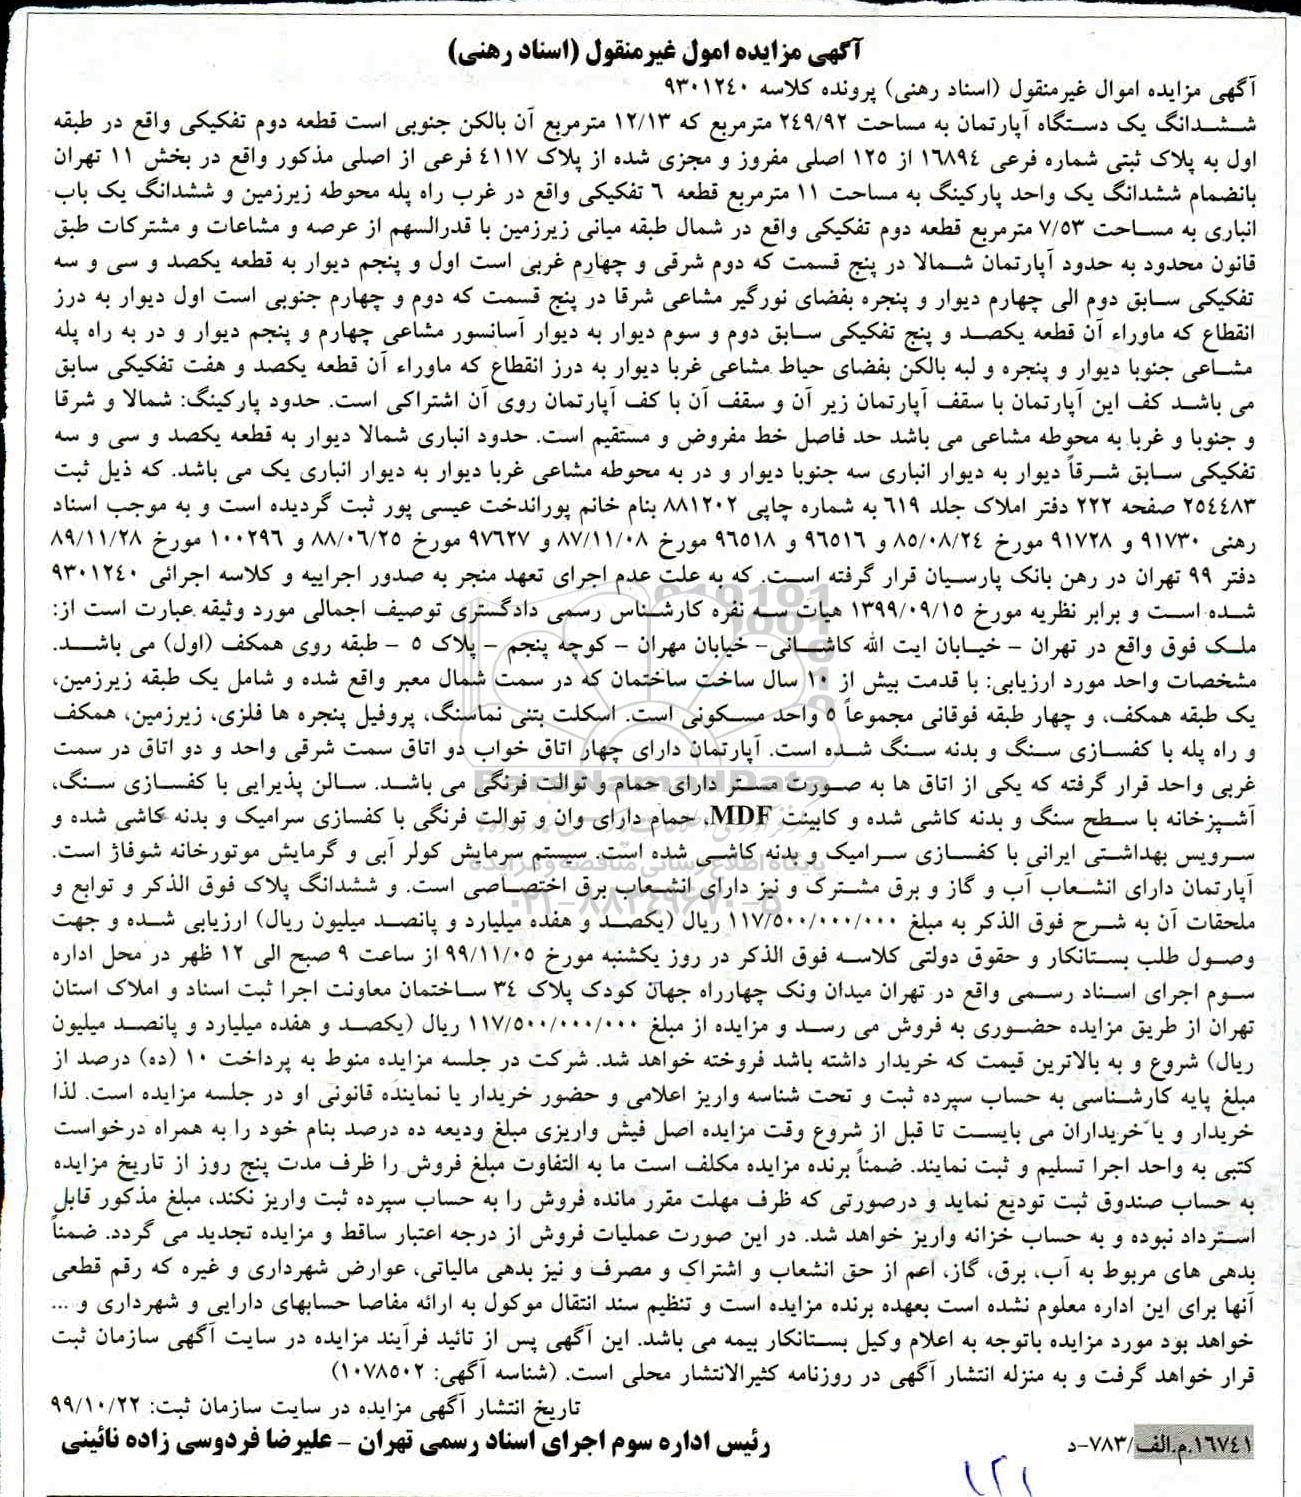 آگهی مزایده امول غیرمنقول (اسناد رهنی)
آگهی مزایده اموال غیرمنقول (اسناد رهنی) پرونده کلاسه ۹۳۰۱۲٤۰
ششدانگ یک دستگاه آپارتمان به مساحت ۲٤۹/۹۲ مترمربع که ۱۲/۱۳ مترمربع آن بالکن جنوبی است قطعه دوم تفکیکی واقع در طبقه
اول به پلاک ثبتی شماره فرعی ۱٦۸۹٤ از ۱۲۵ اصلی مفروز و مجزی شده از پلاک ٤۱۱۷ فرعی از اصلی مذکور واقع در بخش ۱۱ تهران
بانضمام ششدانگ یک واحد پارکینگ به مساحت ۱۱ مترمربع قطعه ٦ تفکیکی واقع در غرب راه پله محوطه زیرزمین و ششدانگ یک باب
انباری به مساحت ۷/۵۳ مترمربع قطعه دوم تفکیکی واقع در شمال طبقه میانی زیرزمین با قدرالسهم از عرصه و مشاعات و مشترکات طبق
قانون محدود به حدود آپارتمان شمالا در پنج قسمت که دوم شرقی و چهارم غربی است اول و پنجم دیوار به قطعه یکصد و سی و سه
تفکیکی سابق دوم الی چهارم دیوار و پنجره بفضای نورگیر مشاعی شرقا در پنج قسمت که دوم و چهارم جنوبی است اول دیوار به درز
انقطاع که ماوراء آن قطعه یکصد و پنج تفکیکی سابق دوم و سوم دیوار به دیوار آسانسور مشاعی چهارم و پنجم دیوار و در به راه پله
مشاعی جنوبا دیوار و پنجره و لبه بالکن بفضای حیاط مشاعی غربا دیوار به درز انقطاع که ماوراء آن قطعه یکصد و هفت تفکیکی سابق
می باشد کف این آپارتمان با سقف آپارتمان زیر آن و سقف آن با کف آپارتمان روی آن اشتراکی است. حدود پارکینگ: شمالا و شرقا
و جنوبا و غربا به محوطه مشاعی می باشد حد فاصل خط مفروض و مستقیم است. حدود انباری شمالا دیوار به قطعه یکصد و سی و سه
تفکیکی سابق شرقاً دیوار به دیوار انباری سه جنوبا دیوار و در به محوطه مشاعی غربا دیوار به دیوار انباری یک می باشد. که ذیل ثبت
۲۵٤٤۸۳ صفحه ۲۲۲ دفتر املاک جلد ٦۱۹ به شماره چاپی ۸۸۱۲۰۲ بنام خانم پوراندخت عیسی پور ثبت گردیده است و به موجب اسناد
رهنی ۹۱۷۳۰ و ۹۱۷۲۸ مورخ ۸۵/۰۸/۲٤ و ۹٦۵۱٦ و ۹٦۵۱۸ مورخ ۸۷/۱۱/۰۸ و ۹۷٦۲۷ مورخ ۸۸/۰٦/۲۵ و ۱۰۰۲۹٦ مورخ ۸۹/۱۱/۲۸
دفتر ۹۹ تهران در رهن بانک پارسیان قرار گرفته است. که به علت عدم اجرای تعهد منجر به صدور اجراییه و کلاسه اجرائی ۹۳۰۱۲٤۰
شده است و برابر نظریه مورخ ۱۳۹۹/۰۹/۱۵ هیات سه نفره کارشناس رسمی دادگستری توصیف اجمالی مورد وثیقه عبارت است از:
ملک فوق واقع در تهران – خیابان ایت الله کاشانی- خیابان مهران – کوچه پنجم – پلاک ۵ – طبقه روی همکف (اول) می باشد.
مشخصات واحد مورد ارزیابی: با قدمت بیش از ۱۰ سال ساخت ساختمان که در سمت شمال معبر واقع شده و شامل یک طبقه زیرزمین،
یک طبقه همکف، و چهار طبقه فوقانی مجموعاً ۵ واحد مسکونی است. اسکلت بتنی نماسنگ، پروفیل پنجره ها فلزی، زیرزمین، همکف
و راه پله با کفسازی سنگ و بدنه سنگ شده است. آپارتمان دارای چهار اتاق خواب دو اتاق سمت شرقی واحد و دو اتاق در سمت
غربی واحد قرار گرفته که یکی از اتاق ها به صورت مستر دارای حمام و توالت فرنگی می باشد. سالن پذیرایی با کفسازی سنگ،
آشپزخانه با سطح سنگ و بدنه کاشی شده و کابینت MDF، حمام دارای وان و توالت فرنگی با کفسازی سرامیک و بدنه کاشی شده و
سرویس بهداشتی ایرانی با کفسازی سرامیک و بدنه کاشی شده است. سیستم سرمایش کولر آبی و گرمایش موتورخانه شوفاژ است.
آپارتمان دارای انشعاب آب و گاز و برق مشترک و نیز دارای انشعاب برق اختصاصی است. و ششدانگ پلاک فوق الذکر و توابع و
ملحقات آن به شرح فوق الذکر به مبلغ ۱۱۷/۵۰۰/۰۰۰/۰۰۰ ریال (یکصد و هفده میلیارد و پانصد میلیون ریال) ارزیابی شده و جهت
وصول طلب بستانکار و حقوق دولتی کلاسه فوق الذکر در روز یکشنبه مورخ ۹۹/۱۱/۰۵ از ساعت ۹ صبح الی ۱۲ ظهر در محل اداره
سوم اجرای اسناد رسمی واقع در تهران میدان ونک چهارراه جهان کودک پلاک ۳٤ ساختمان معاونت اجرا ثبت اسناد و املاک استان
تهران از طریق مزایده حضوری به فروش می رسد و مزایده از مبلغ ۱۱۷/۵۰۰/۰۰۰/۰۰۰ ریال (یکصد و هفده میلیارد و پانصد میلیون
ریال) شروع و به بالاترین قیمت که خریدار داشته باشد فروخته خواهد شد. شرکت در جلسه مزایده منوط به پرداخت ۱۰ (ده) درصد از
مبلغ پایه کارشناسی به حساب سپرده ثبت و تحت شناسه واریز اعلامی و حضور خریدار یا نماینده قانونی او در جلسه مزایده است. لذا
خریدار و یا خریداران می بایست تا قبل از شروع وقت مزایده اصل فیش واریزی مبلغ ودیعه ده درصد بنام خود را به همراه درخواست
کتبی به واحد اجرا تسلیم و ثبت نمایند. ضمناً برنده مزایده مکلف است ما به التفاوت مبلغ فروش را ظرف مدت پنج روز از تاریخ مزایده
به حساب صندوق ثبت تودیع نماید و درصورتی که ظرف مهلت مقرر مانده فروش را به حساب سپرده ثبت واریز نکند، مبلغ مذکور قابل
استرداد نبوده و به حساب خزانه واریز خواهد شد. در این صورت عملیات فروش از درجه اعتبار ساقط و مزایده تجدید می گردد. ضمناً
بدهی های مربوط به آب، برق، گاز، اعم از حق انشعاب و اشتراک و مصرف و نیز بدهی مالیاتی، عوارض شهرداری و غیره که رقم قطعی
آنها برای این اداره معلوم نشده است بعهده برنده مزایده است و تنظیم سند انتقال موکول به ارائه مفاصا حسابهای دارایی و شهرداری و ...
خواهد بود مورد مزایده باتوجه به اعلام وکیل بستانکار بیمه می باشد. این آگهی پس از تائید فرآیند مزایده در سایت آگهی سازمان ثبت
قرار خواهد گرفت و به منزله انتشار آگهی در روزنامه کثیرالانتشار محلی است. (شناسه آگهی: ۱۰۷۸۵۰۲)
تاریخ انتشار آگهی مزایده در سایت سازمان ثبت: ۹۹/۱۰/۲۲
رئیس اداره سوم اجرای اسناد رسمی تهران – علیرضا فردوسی زاده نائینی
۱٦۷٤۱.م.الف/۷۸۳-د
۱۲۱
ParsNamadData
پایگاه اطلاع رسانی مناقصه و مزایده
۰۲۱-۸۸۳٤۹٦۷۰-۵